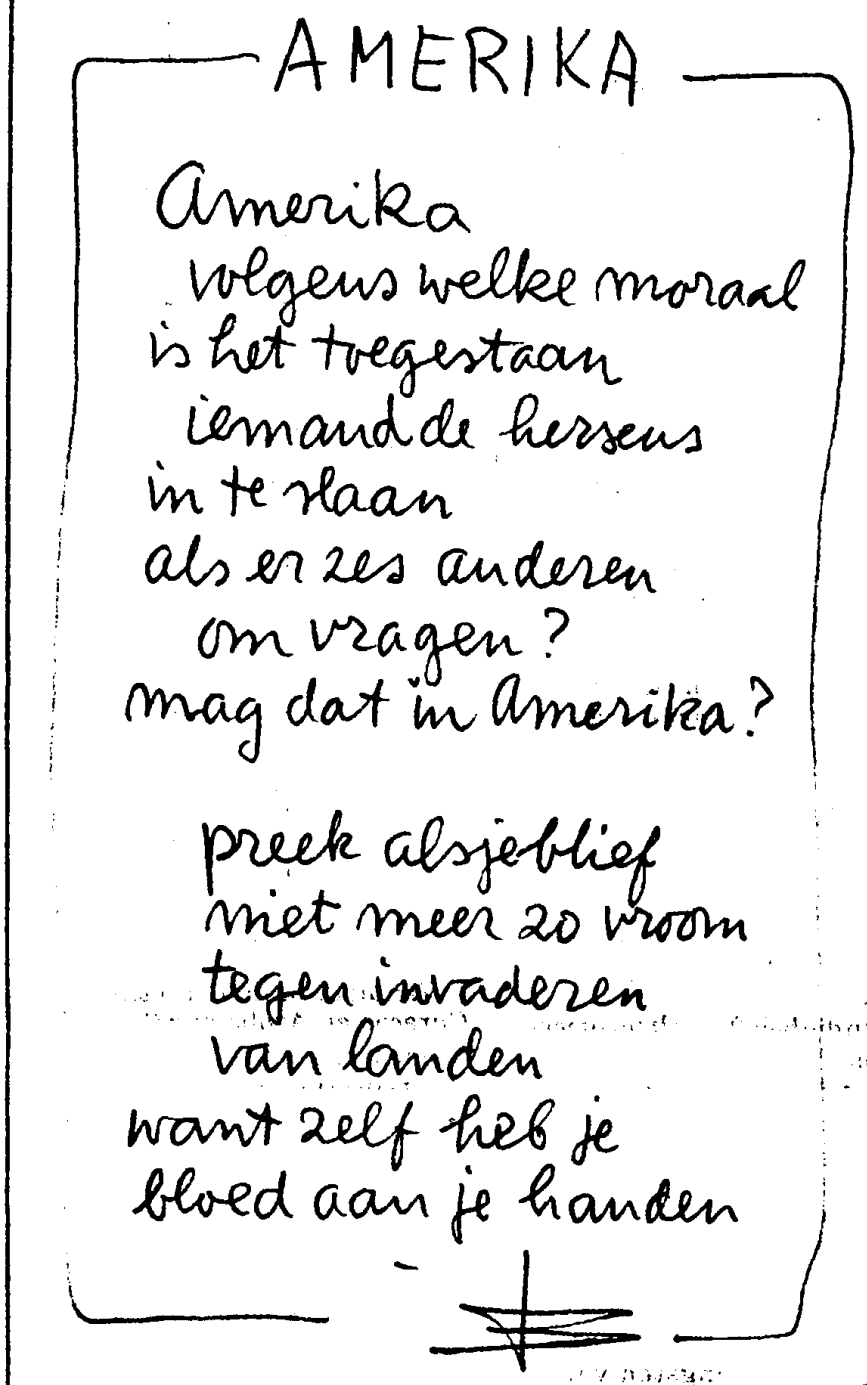 AMERIKA
Amerika
volgens welke moraal
is het toegestaan
iemand de hersens
in te slaan
als er zes anderen
om vragen?
mag dat in Amerika?
preek alsjeblief
niet meer zo vroom
tegen invaderen
van landen
want zelf heb je
bloed aan je handen